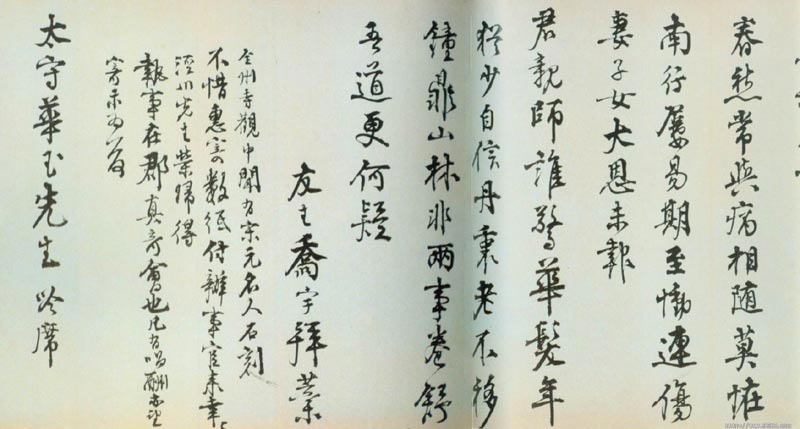 春愁常與病相随莫怪
南行屡易期至慟連傷
妻子女大恩未報
君親師誰驚華髮年
猶少自信丹衷老不移
鐘鼎山林非兩事卷舒
吾道更何疑
友生喬宇拜藁
全州寺觀中聞有宋元名人石刻
不惜惠寄數紙付辦事官来幸幸
涇川先生榮歸得
執事在郡真奇會也凡有唱酬亦望
寄示為荷
太守華玉先生吟席